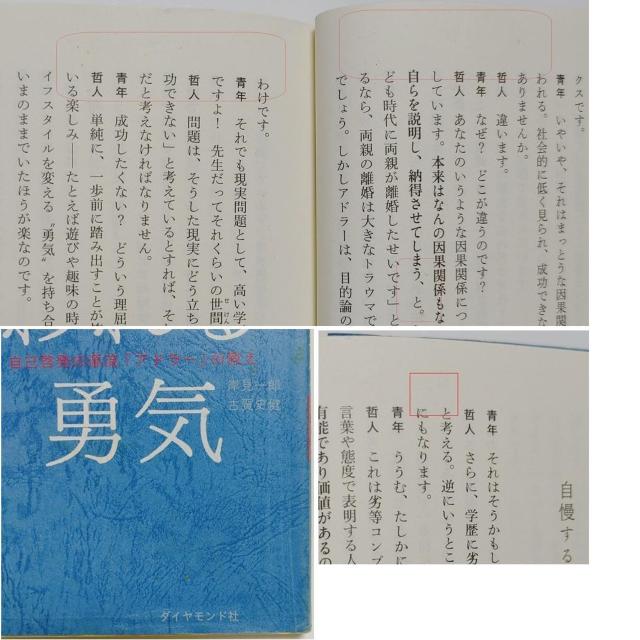 クスです。
青年　いやいや、それはまっとうな因果関
われる。社会的に低く見られ、成功できな
ありませんか。
哲人　違います。
青年　なぜ？　どこが違うのです？
哲人　あなたのいうような因果関係につ
しています。本来はなんの因果関係もな
自らを説明し、納得させてしまう、と。
ども時代に両親が離婚したせいです」と
るなら、両親の離婚は大きなトラウマで
でしょう。しかしアドラーは、目的論の
わけです。
青年　それでも現実問題として、高い学
ですよ！　先生だってそれくらいの世間
哲人　問題は、そうした現実にどう立ち
功できない」と考えているとすれば、そ
だと考えなければなりません。
青年　成功したくない？　どういう理屈
哲人　単純に、一歩前に踏み出すことが
いる楽しみ――たとえば遊びや趣味の時
イフスタイルを変える〝勇気〟を持ち合
いまのままでいたほうが楽なのです。
自己啓発の源流「アドラー」の教え
岸見一郎
古賀史健
勇気
ダイヤモンド社
自慢する
青年　それはそうかもし
哲人　さらに、学歴に劣
と考える。逆にいうとこ
にもなります。
青年　ううむ、たしかに
哲人　これは劣等コンプ
言葉や態度で表明する人
有能であり価値があるの